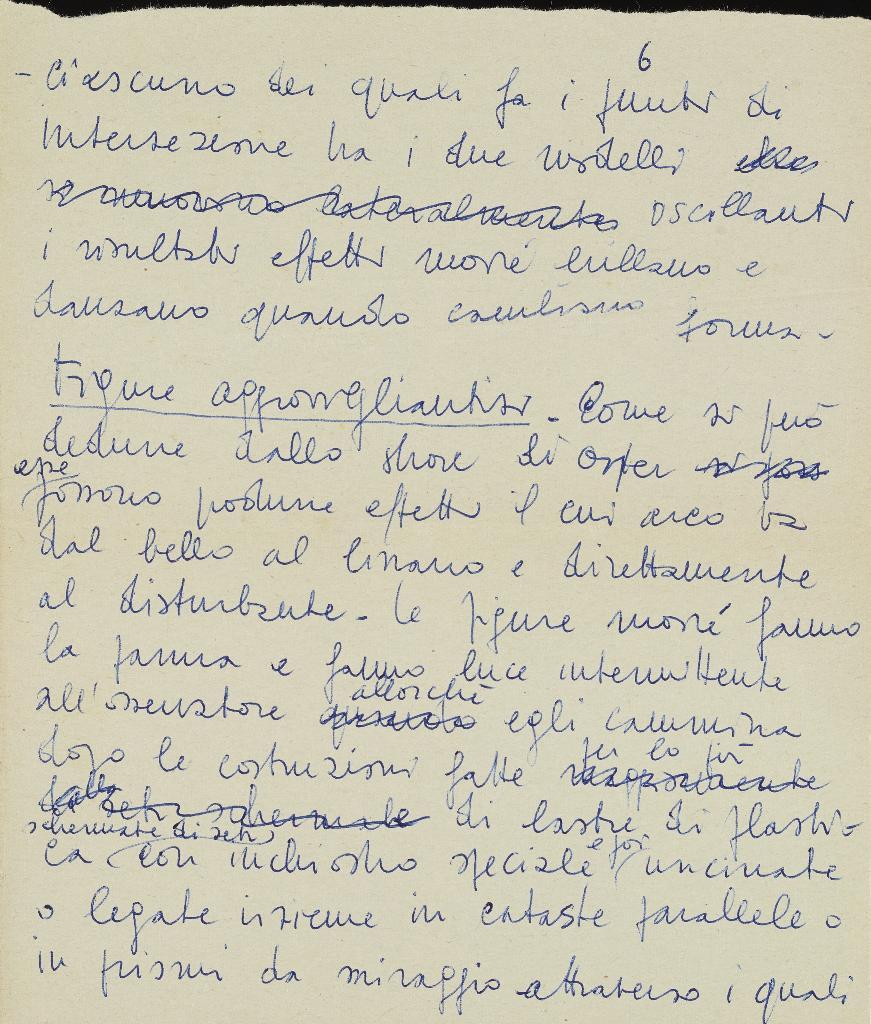 6
- Ciascuno dei quali fa i punti di
intersezione tra i due modelli
se muovono lateralmente oscillanti
i risultati effetti moiré brillano e
danzano quando cambiano forma -
Figure aggrovigliantisi - Come si può
dedurre dallo show di Oster si possono
esse
possono produrre effetti il cui arco va
dal bello al bizzarro e direttamente
al disturbante - Le figure moiré fanno
la panna e fanno luce intermittente
all'osservatore quando allorchè egli cammina
dopo le costruzioni fatte per lo più
dalla seti schermate di lastre di plasti-
schermate di seta
ca con inchiostro speciale e poi uncinate
o legate insieme in cataste parallele o
in prismi da miraggio attraverso i quali